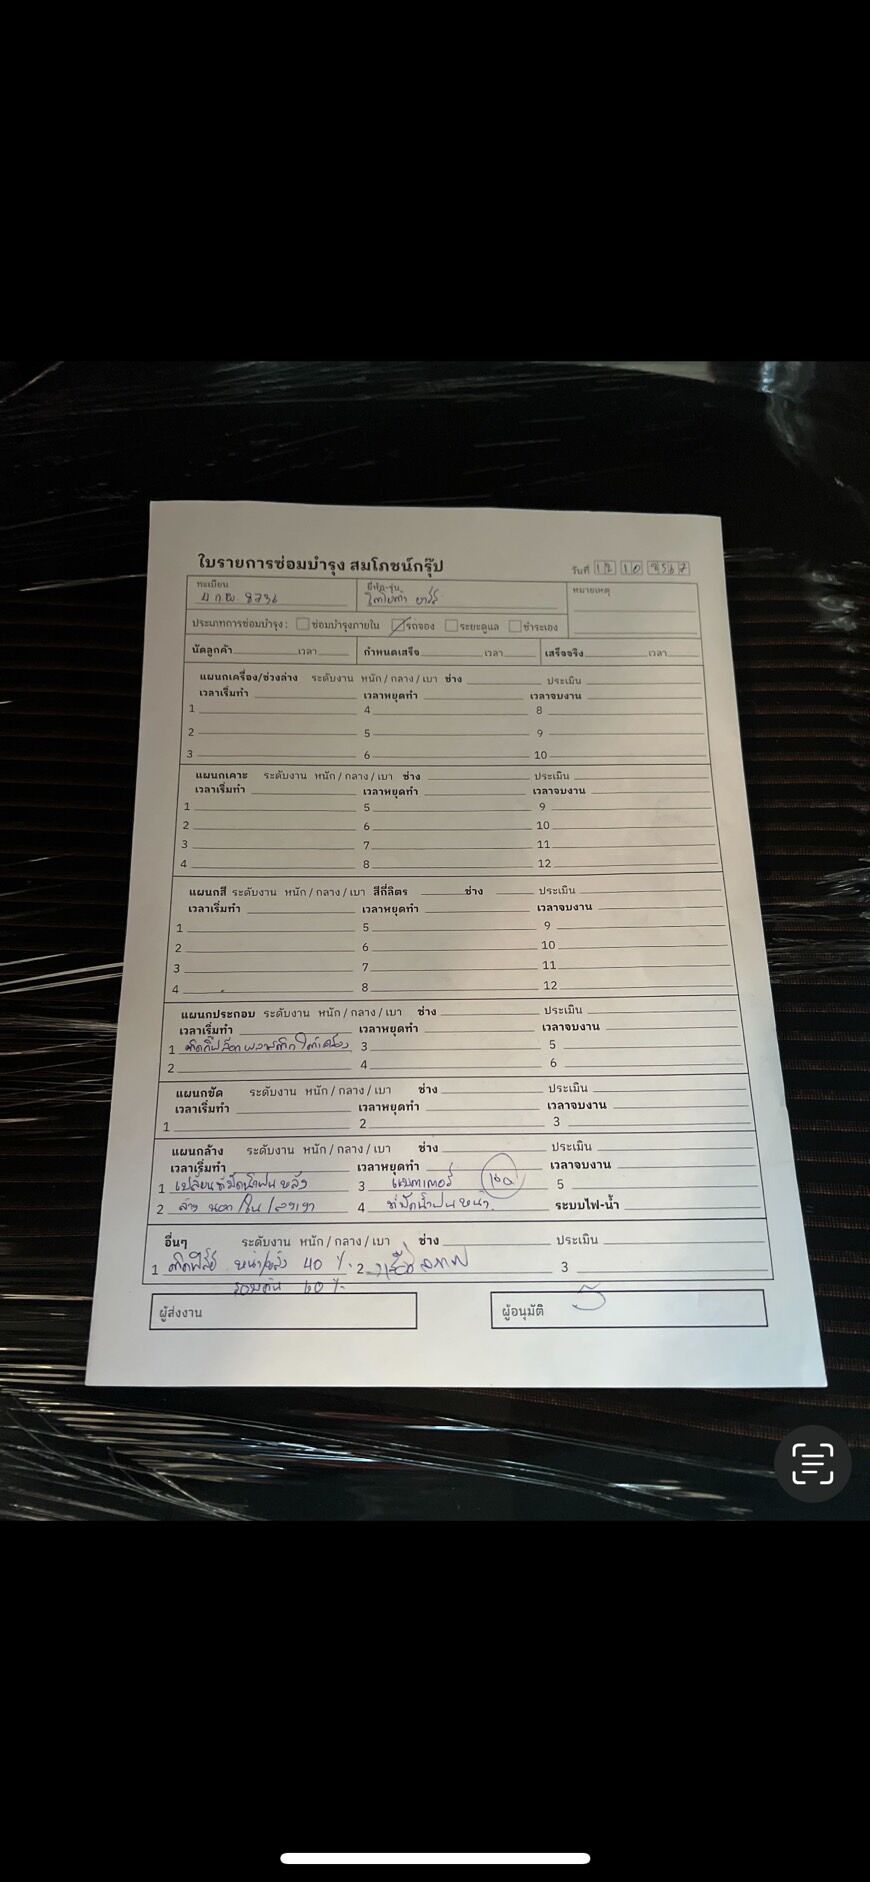 ใบรายการซ่อมบำรุง สมโภชน์กรุ๊ป
วันที่ 12 10 2567
ทะเบียน ยี่ห้อ-รุ่น หมายเหตุ
8736 โตโยต้า ยาริส
ประเภทการซ่อมบำรุง : ซ่อมบำรุงภายใน รถจอง ระยะดูแล ชำระเอง
นัดลูกค้า เวลา กำหนดเสร็จ เวลา เสร็จจริง เวลา
แผนกเครื่อง/ช่วงล่าง ระดับงาน หนัก / กลาง / เบา ช่าง ประเมิน
เวลาเริ่มทำ เวลาหยุดทำ เวลาจบงาน
1 4 8
2 5 9
3 6 10
แผนกเคาะ ระดับงาน หนัก / กลาง / เบา ช่าง ประเมิน
เวลาเริ่มทำ เวลาหยุดทำ เวลาจบงาน
1 5 9
2 6 10
3 7 11
4 8 12
แผนกสี ระดับงาน หนัก / กลาง / เบา สีกี่ลิตร ช่าง ประเมิน
เวลาเริ่มทำ เวลาหยุดทำ เวลาจบงาน
1 5 9
2 6 10
3 7 11
4 8 12
แผนกประกอบ ระดับงาน หนัก / กลาง / เบา ช่าง ประเมิน
เวลาเริ่มทำ เวลาหยุดทำ เวลาจบงาน
1 ติดกิ๊ฟล็อก พลาสติก ใต้เครื่อง 3 5
2 4 6
แผนกขัด ระดับงาน หนัก / กลาง / เบา ช่าง ประเมิน
เวลาเริ่มทำ เวลาหยุดทำ เวลาจบงาน
1 2 3
แผนกล้าง ระดับงาน หนัก / กลาง / เบา ช่าง ประเมิน
เวลาเริ่มทำ เวลาหยุดทำ เวลาจบงาน
1 เปลี่ยนที่ปัดน้ำฝนหลัง 3 แบตเตอรี่ 5
2 ล้าง นอก/ใน/ลงเงา 4 ที่ปัดน้ำฝนหน้า ระบบไฟ-น้ำ
อื่นๆ ระดับงาน หนัก / กลาง / เบา ช่าง ประเมิน
1 ติดฟิล์ม หน้า/หลัง 40 % 2 3
รอบคัน 60 %
ผู้ส่งงาน ผู้อนุมัติ